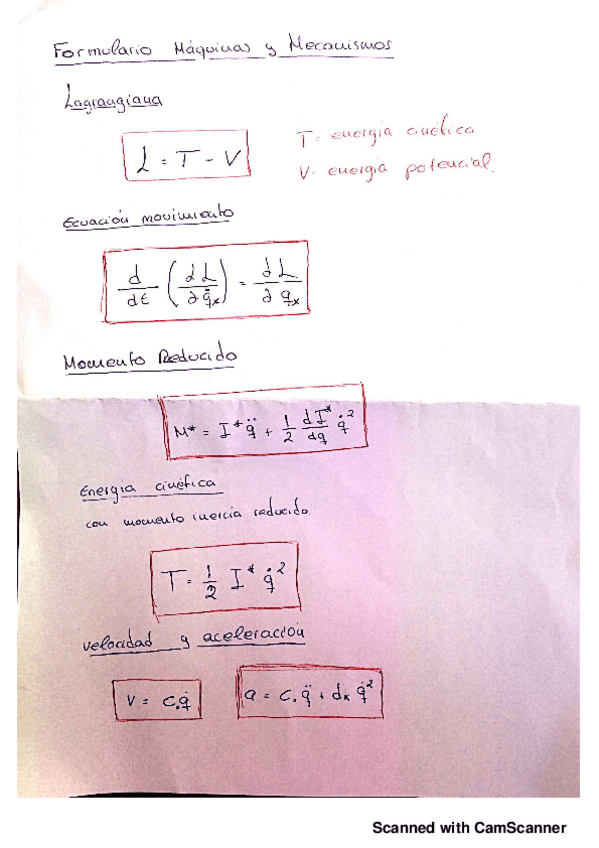 Formulario Máquinas y Mecanismos
Lagrangiana
L = T - V
T = energía cinética
V = energía potencial.
Ecuación movimiento
d/dt (∂L/∂q̇ₖ) = ∂L/∂qₖ
Momento Reducido
M* = I* q̈ + 1/2 dI*/dq q̇²
Energía cinética
con momento inercia reducido.
T = 1/2 I* q̇²
velocidad y aceleración
V = C. q̇
a = C. q̈ + dₖ q̇²
Scanned with CamScanner